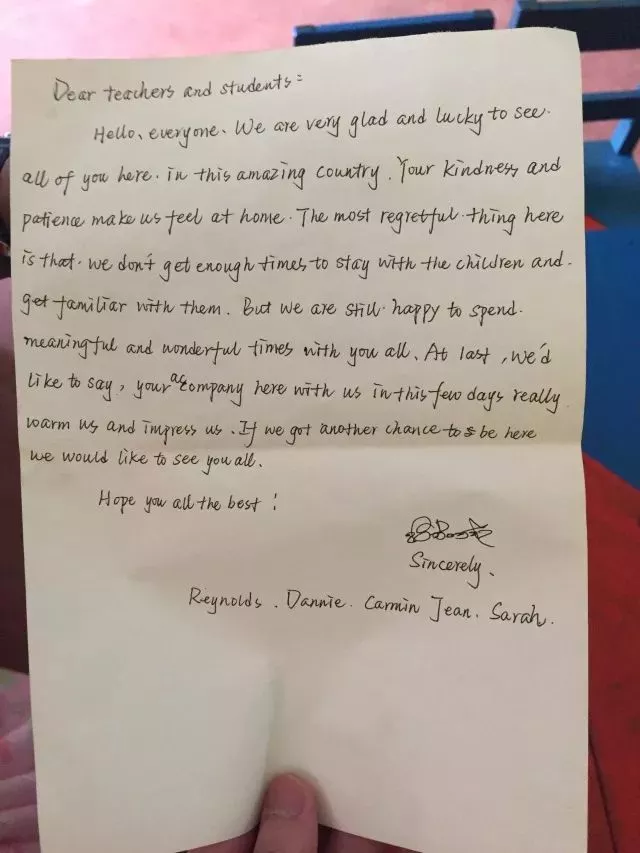 Dear teachers and students:
Hello, everyone. We are very glad and lucky to see
all of you here. in this amazing country. Your kindness and
patience make us feel at home. The most regretful thing here
is that. we don't get enough times to stay with the children and
get familiar with them. But we are still happy to spend
meaningful and wonderful times with you all. At last, we'd
like to say, your accompany here with us in this few days really
warm us and impress us. If we got another chance to be here
we would like to see you all.
Hope you all the best!
Sincerely.
Reynolds. Dannie. Carmin Jean. Sarah.